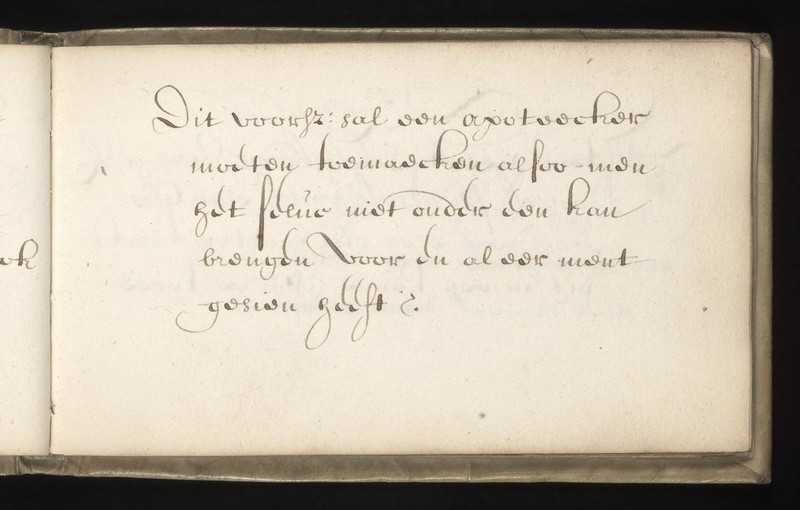 Dit voorsz: sal een apoteecker
moeten toemaecken alsoo men
het selue niet onder een kan
ook
brengen voor en al eer ment
gesien heeft